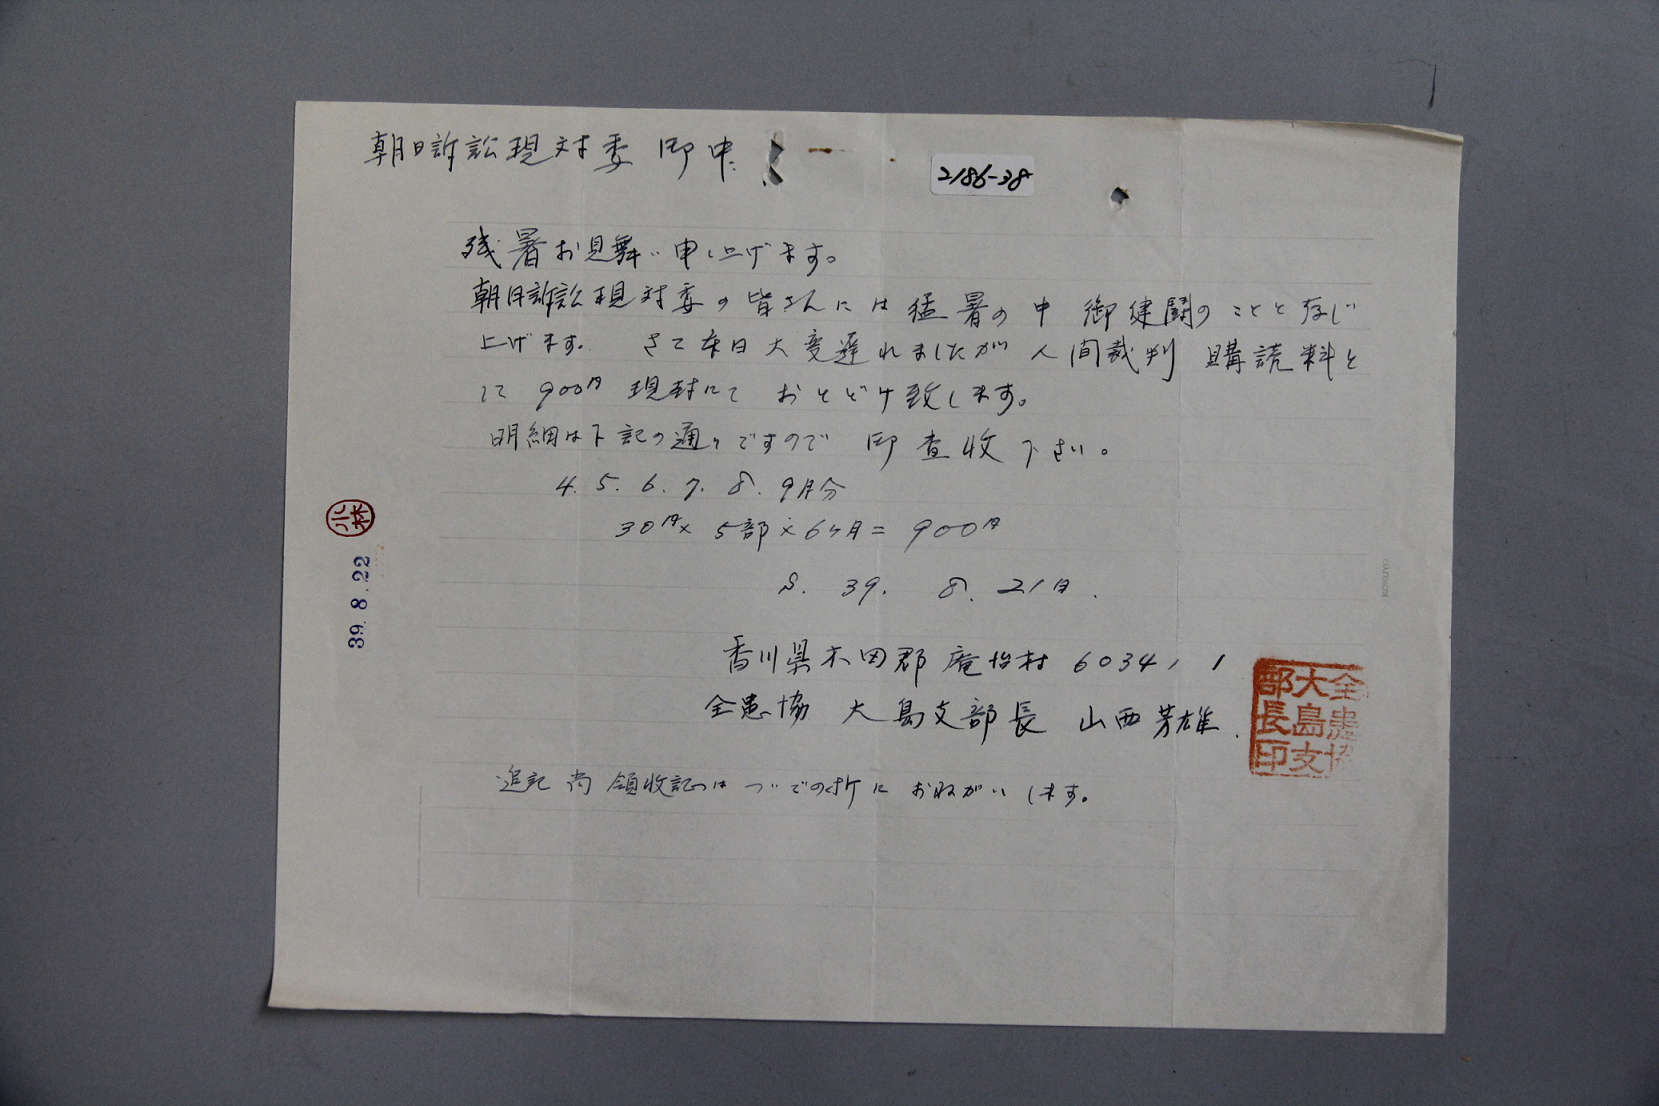 朝日訴訟現対委 御中
2186-38
残暑お見舞い申し上げます。
朝日訴訟現対委の皆さんには猛暑の中 御健闘のことと存じ
上げます。 さて本日大変遅れましたが 人間裁判 購読料と
して 900円 現対にて おとどけ致します。
明細は下記の通りですので 御査收下さい。
4. 5. 6. 7. 8. 9月分
30円× 5部×6ヶ月= 900円
S. 39. 8. 21日.
香川県木田郡庵治村 6034, 1
全患協 大島支部長 山西芳雄.
全患協
大島支
部長印
追記 尚 領收記は ついでの折に おねがいします。
小林
39. 8. 22